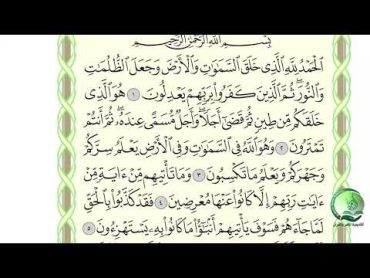 بِسْمِ اللَّهِ الرَّحْمَٰنِ الرَّحِيمِ
الْحَمْدُ لِلَّهِ الَّذِي خَلَقَ السَّمَٰوَٰتِ وَالْأَرْضَ وَجَعَلَ الظُّلُمَٰتِ
وَالنُّورَ ۖ ثُمَّ الَّذِينَ كَفَرُوا بِرَبِّهِمْ يَعْدِلُونَ ١ هُوَ الَّذِي
خَلَقَكُم مِّن طِينٍ ثُمَّ قَضَىٰٓ أَجَلًا ۖ وَأَجَلٌ مُّسَمًّى عِندَهُۥ ۖ ثُمَّ أَنتُمْ
تَمْتَرُونَ ٢ وَهُوَ اللَّهُ فِي السَّمَٰوَٰتِ وَفِي الْأَرْضِ ۖ يَعْلَمُ سِرَّكُمْ
وَجَهْرَكُمْ وَيَعْلَمُ مَا تَكْسِبُونَ ٣ وَمَا تَأْتِيهِم مِّنْ ءَايَةٍ مِّنْ
ءَايَٰتِ رَبِّهِمْ إِلَّا كَانُوا عَنْهَا مُعْرِضِينَ ٤ فَقَدْ كَذَّبُوا بِالْحَقِّ
لَمَّا جَآءَهُمْ ۖ فَسَوْفَ يَأْتِيهِمْ أَنۢبَٰٓؤُا مَا كَانُوا بِهِۦ يَسْتَهْزِءُونَ ٥